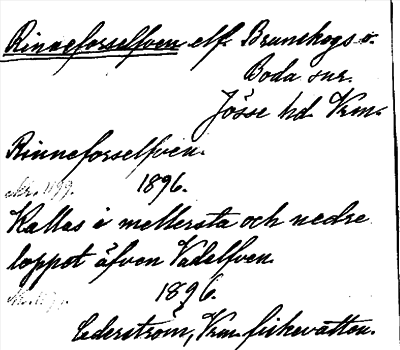 Rinneforselfven elf Brunskogs o.
Boda snr.
Jösse hd Vrm.
Rinneforselfven.
1896.
Kallas i mellersta och nedre
loppet äfven Vadelfven.
1896.
Cederström, Vrm. fiskevatten.